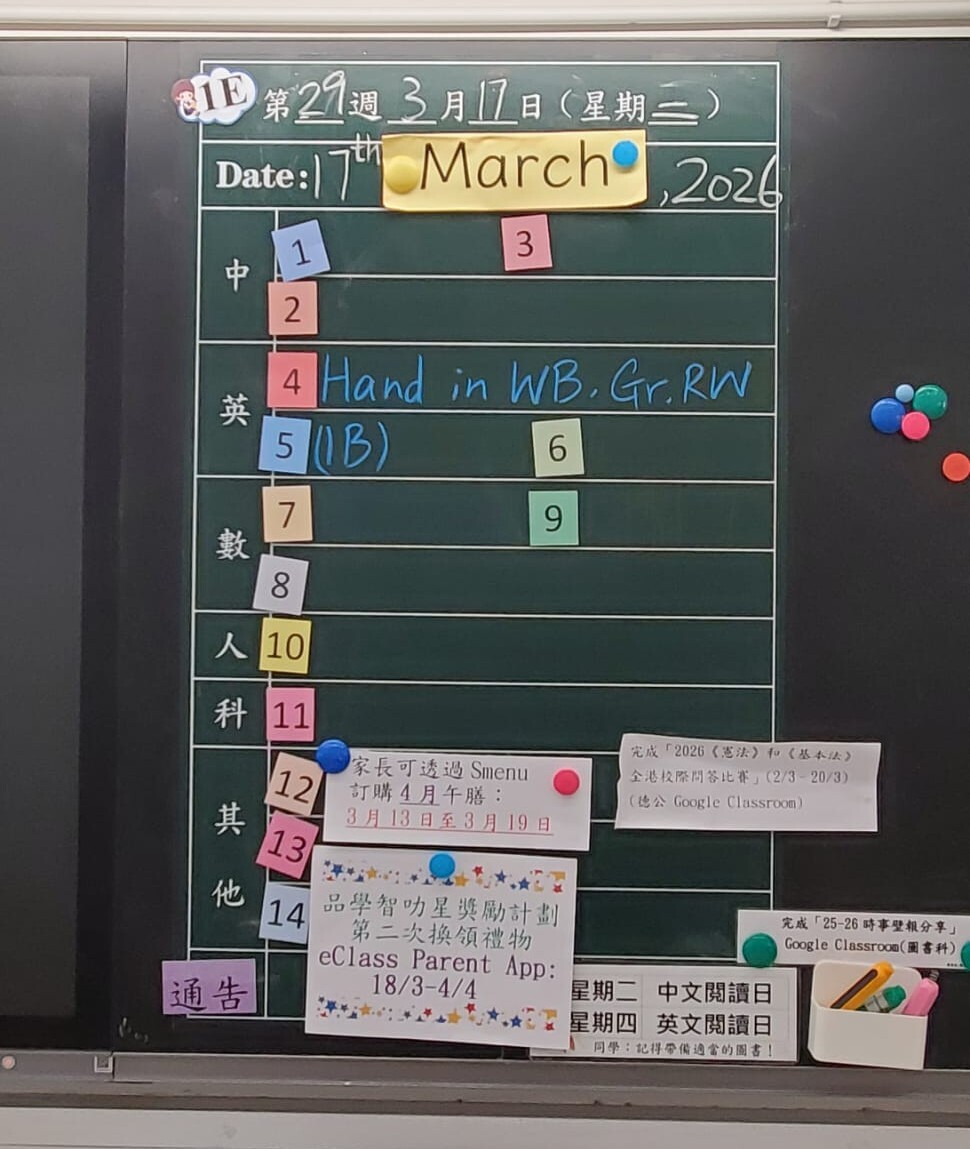 1E 第29週 3月17日(星期二)
Date: 17th March, 2026
中 1 3
2
英 4 Hand in WB, Gr. RW
5 (1B) 6
數 7 9
8
人 10
科 11
其他 12
13
14
家長可透過 Smenu
訂購 4 月午膳:
3 月 13 日至 3 月 19 日
完成「2026《憲法》和《基本法》
全港校際問答比賽」(2/3 - 20/3)
(德公 Google Classroom)
品學智叻星獎勵計劃
第二次換領禮物
eClass Parent App:
18/3-4/4
完成「25-26 時事壁報分享」
Google Classroom(圖書科)
通告
星期二 中文閱讀日
星期四 英文閱讀日
同學:記得帶備適當的圖書!